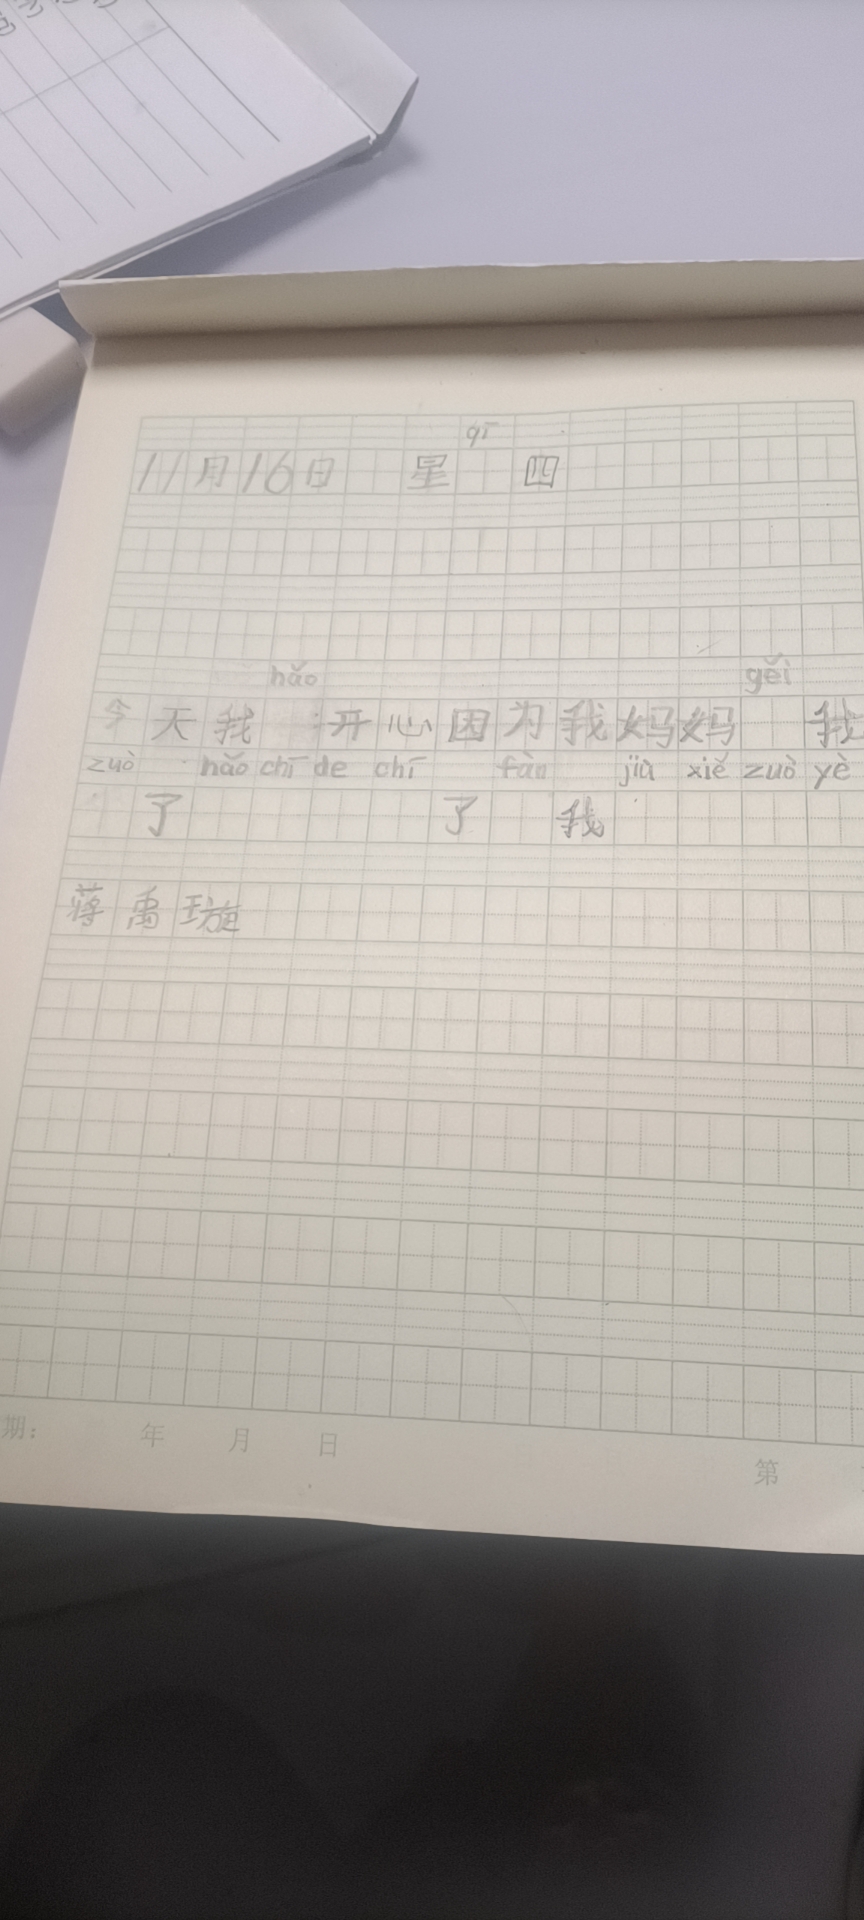 qī
11月16日 星 四
hǎo gěi
今天我 开心因为我妈妈 我
zuò hǎo chī de chī fàn jiù xiě zuò yè
了 了 我
蒋禹璇
期: 年 月 日
第